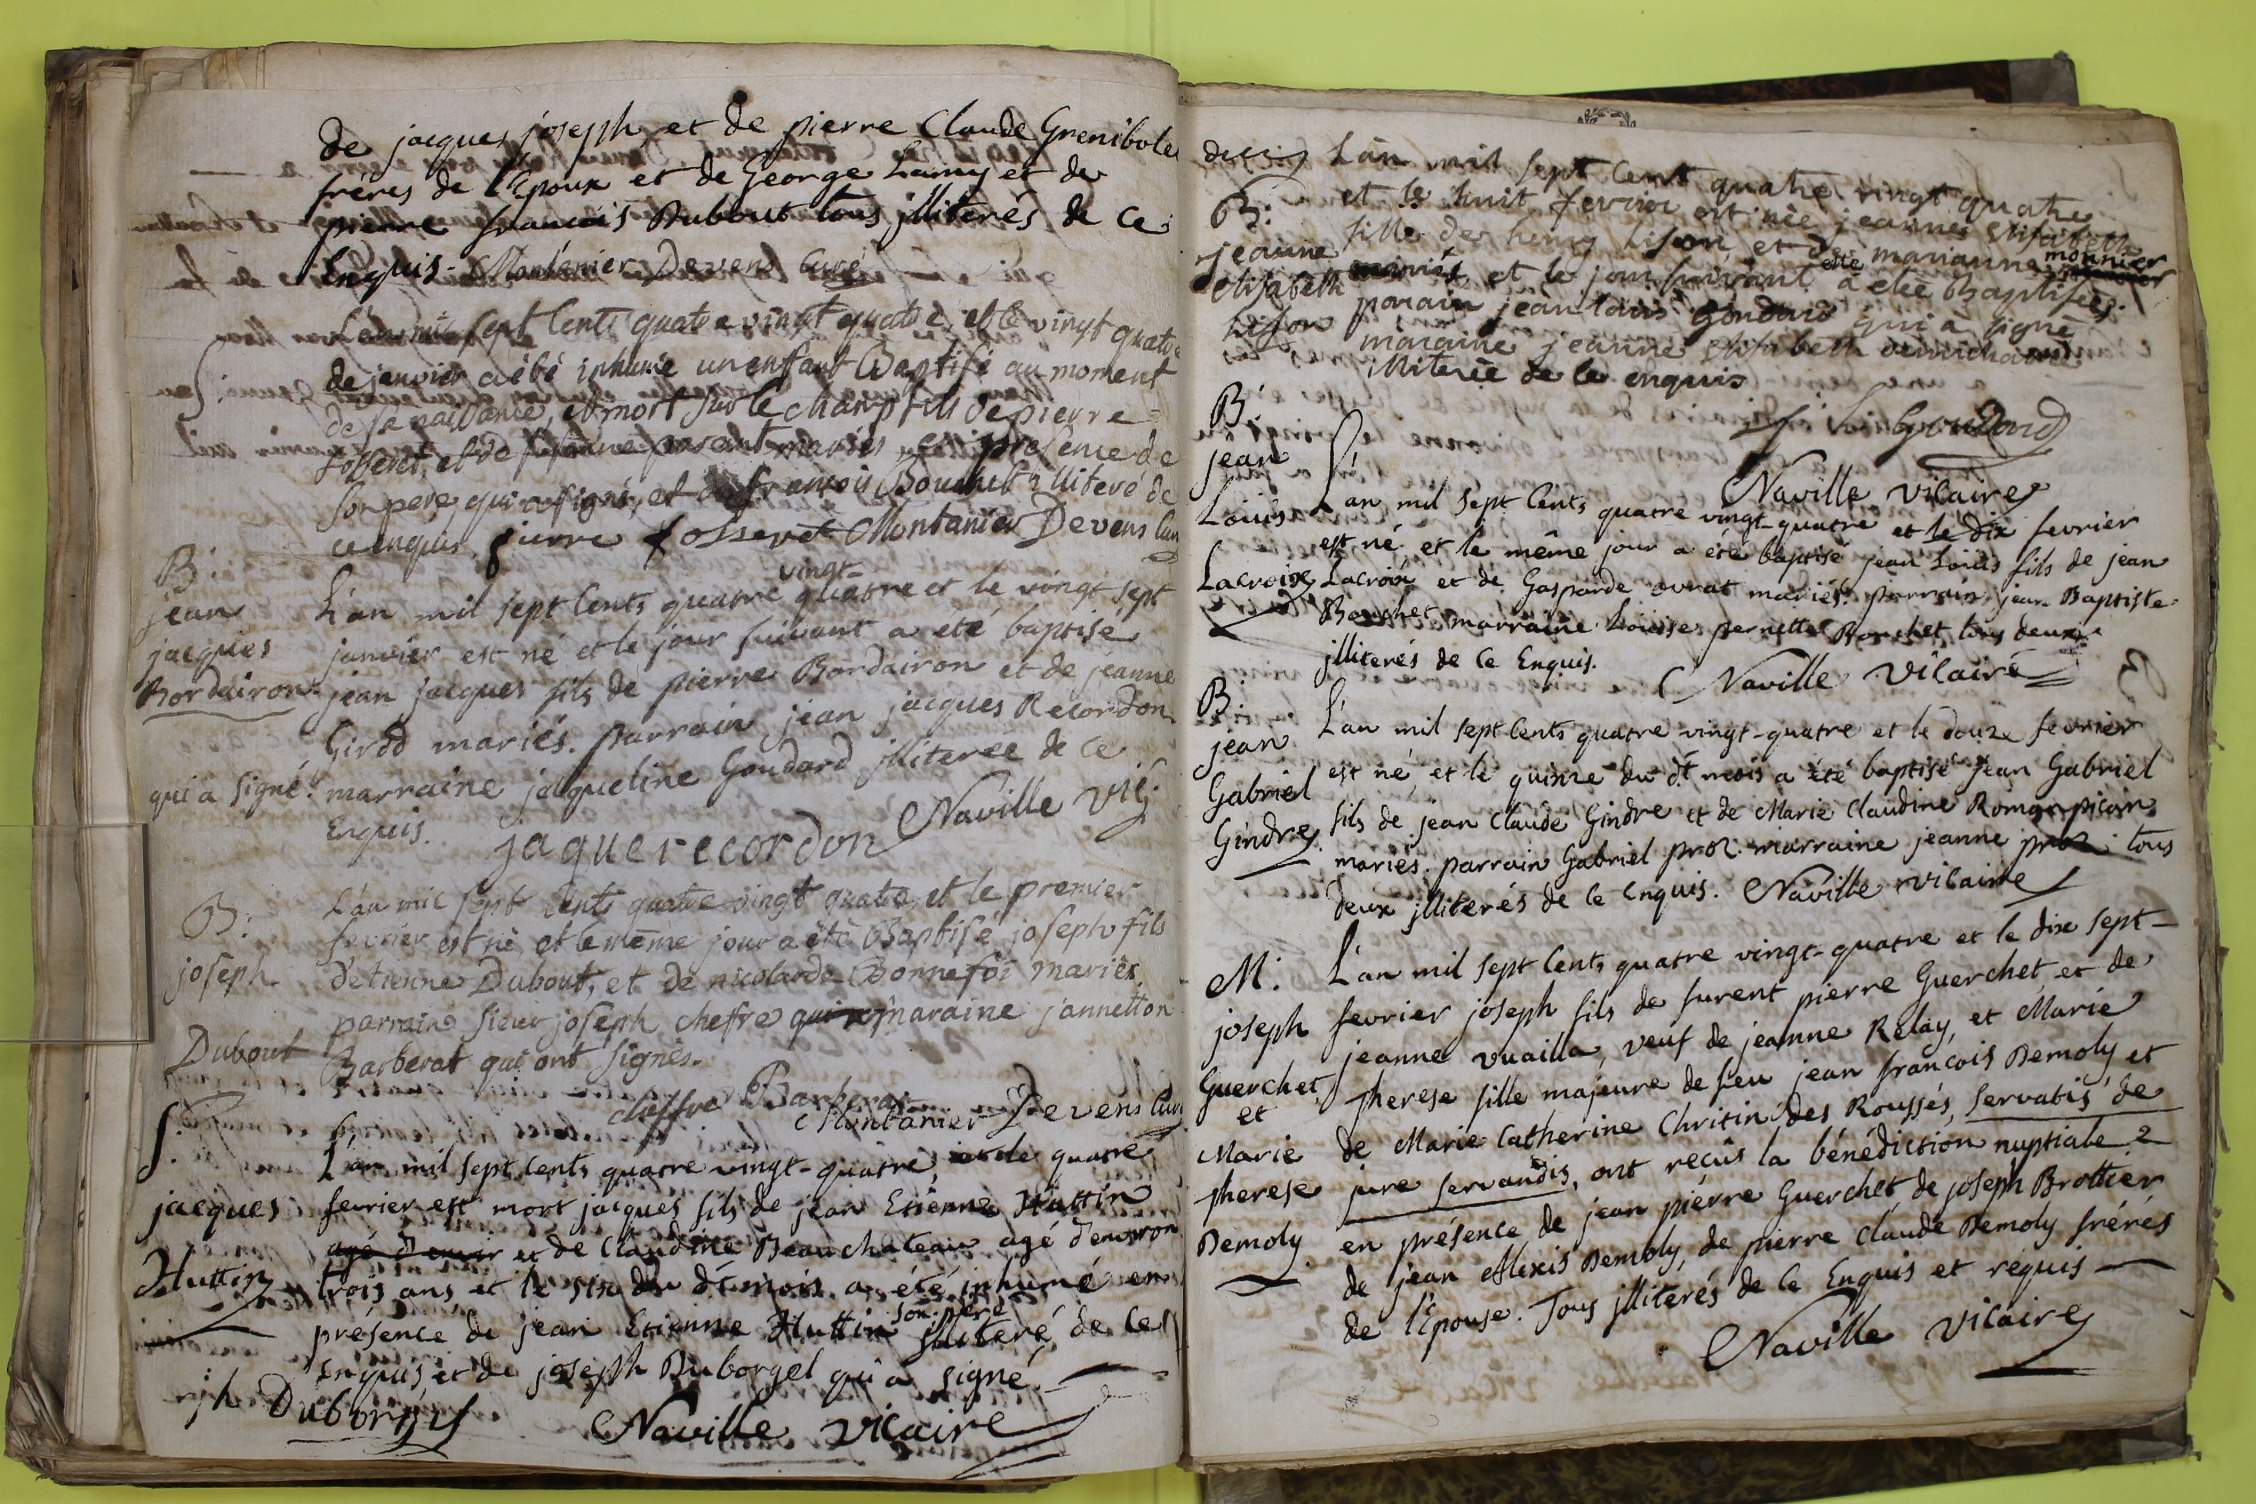 de jacques joseph et de pierre Claude Grenibole
fréres de l'Epoux et de George Lamy et de
pierre francois Dubout tous jlliterés de ce
Enquis. Montanier Devens Curé
L'an mil sept Cents quatre vingt quatre, et le vingt quatre
S:
de janvier a été inhumé un enffant Baptisé au moment
de sa naissance, et mort sur le champ fils de pierre
fosseret, et de mariés en presence de
son pere qui a signé, et de françois Bouchet illiteré de
ce enquis. pierre fosseret Montanier Devens Curé
B:
jean
jacques
Bordairon
L'an mil sept Cents quatre vingt-quatre et le vingt sept
janvier est né et le jour suivant a eté baptisé
jean jacques fils de pierre Bordairon et de jeanne
Girod mariés. parrain jean jacques Recordon
qui a signé. marraine jacqueline Goudard jlliterée de ce
Enquis.
jaque recordon Naville Vic:
B:
joseph
Dubout
L'an mil sept Cents quatre vingt quatre, et le premier
fevrier est né et le même jour a été Baptisé joseph fils
d'etienne Dubout, et de nicolarde Bonnefoi mariés
parrain sieur joseph cheffre qui a maraine jannetton
Barberat qui ont signés.
cheffre Barberat
Montanier Devens Curé
S:
jacques
Huttin
L'an mil sept Cents quatre vingt-quatre, et le quatre
fevrier est mort jacques fils de jean Etienne Huttin
agé d'envir et de Claudine Beauchateau agé d'environ
trois ans et le six du dt mois a été inhumé en
présence de jean Etienne Huttin son pere jlliteré de ce
Enquis et de joseph Duborgel qui a signé.
jph Duborgel Naville Vicaire
B:
jeanne
Elisabeth
Lison
L'an mil sept Cent quatre vingt quatre
et le huit fevrier est née jeanne Elisabeth
fille de henry Lison, et de marianne monnier
mariés et le jour suivant elle a eté Baptisée.
parain jean louis Goudard qui a signé
maraine jeanne Elisabeth
illiterée de ce enquis
j: L: Goudard
Naville Vicaire
B:
jean
Louis
Lacroix
L'an mil sept Cents quatre vingt-quatre et le dix fevrier
est né, et le même jour a été baptisé jean Louis fils de jean
Lacroix et de Gasparde ovrat mariés. parrain jean Baptiste
Borchet marraine Louise pernette Borchet, tous deux
jlliterés de ce Enquis.
Naville Vicaire
B:
jean
Gabriel
Gindre
L'an mil sept Cents quatre vingt-quatre et le douze fevrier
est né, et le quinze du dt mois a été baptisé jean Gabriel
fils de jean Claude Gindre et de Marie Claudine Roman picon
mariés. parrain Gabriel proz. marraine jeanne proz. tous
deux jlliterés de ce Enquis. Naville Vicaire
M:
joseph
Guerchet
et
Marie
therese
Demoly
L'an mil sept Cents quatre vingt-quatre et le dix sept
fevrier joseph fils de furent pierre Guerchet et de
jeanne vuailla, veuf de jeanne Relay, et Marie
therese fille majeure de feu jean francois Demoly et
de Marie Catherine Chritin des Rousses, servatis de
jure servandis, ont reçus la bénédiction nuptiale
en présence de jean pierre Guerchet de joseph Brottier
de jean Alexis Demoly, de pierre Claude Demoly fréres
de l'Epouse. Tous jlliterés de ce Enquis et requis
Naville Vicaire